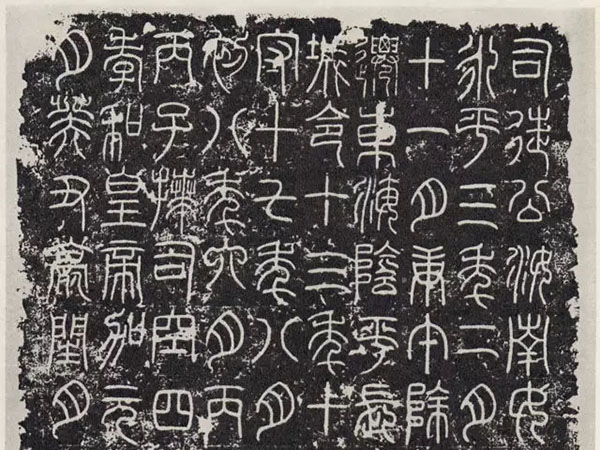 司徒公汝南女
永平三年二月
十一月庚午除
遷東海陰平長
城令十三年十
守十七年八月
初八年六月丙
丙子拜司空四
孝和皇帝加元
月癸丑薨閏月